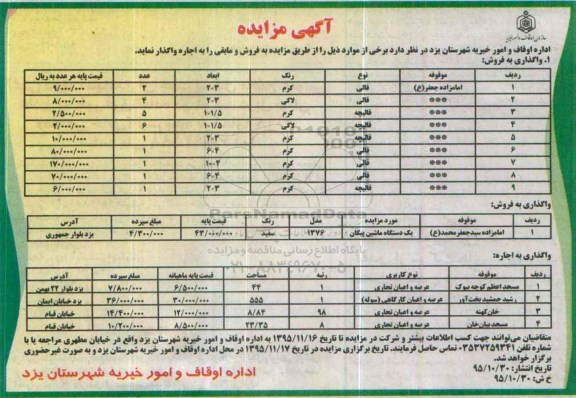 آگهی مزایده
اداره اوقاف و امور خیریه شهرستان یزد در نظر دارد برخی از موارد ذیل را از طریق مزایده به فروش و مابقی را به اجاره واگذار نماید.
۱. واگذاری به فروش:
ردیف موقوفه نوع رنگ ابعاد عدد قیمت پایه هر عدد به ریال
۱ امامزاده جعفر(ع) قالی کرم ۲۰۳ ۲ ۹/۰۰۰/۰۰۰
۲ *** قالی لاکی ۲۰۳ ۴ ۸/۰۰۰/۰۰۰
۳ *** قالیچه کرم ۱۰۱/۵ ۵ ۲/۵۰۰/۰۰۰
۴ *** قالیچه لاکی ۱۰۱/۵ ۶ ۲/۰۰۰/۰۰۰
۵ *** قالیچه کرم ۲۰۳ ۱ ۱۰/۰۰۰/۰۰۰
۶ *** قالی کرم ۶۰۴ ۱ ۸۰/۰۰۰/۰۰۰
۷ *** قالی کرم ۱۰۰۴ ۱ ۱۷۰/۰۰۰/۰۰۰
۸ *** قالی کرم ۶۰۴ ۱ ۷۰/۰۰۰/۰۰۰
۹ *** قالیچه کرم ۲۰۳ ۱ ۶/۰۰۰/۰۰۰
واگذاری به فروش:
ردیف موقوفه مورد مزایده مدل رنگ قیمت پایه مبلغ سپرده آدرس
۱ امامزاده سیدجعفر محمد(ع) یک دستگاه ماشین پیکان ۱۳۷۶ سفید ۴۳/۰۰۰/۰۰۰ ۴/۳۰۰/۰۰۰ یزد بلوار جمهوری
واگذاری به اجاره:
ردیف موقوفه نوع کاربری رتبه مساحت قیمت پایه ماهیانه مبلغ سپرده آدرس
۱ مسجد اعظم کوچه بیوک عرصه و اعیان تجاری ۱ ۴۴ ۶/۵۰۰/۰۰۰ ۷/۸۰۰/۰۰۰ یزد بلوار ۲۲ بهمن
۲ رشید جمشید بخت آور عرصه و اعیان کارگاهی (سوله) ۱ ۵۵۵ ۳۰/۰۰۰/۰۰۰ ۳۶/۰۰۰/۰۰۰ یزد خیابان ایمان
۳ خان کهنه عرصه و اعیان تجاری ۹۸ ۸/۸۴ ۱۲/۰۰۰/۰۰۰ ۱۴/۴۰۰/۰۰۰ خیابان قیام
۴ مسجد میان خان عرصه و اعیان تجاری ۸ ۲۳/۳۵ ۸/۵۰۰/۰۰۰ ۱۰/۲۰۰/۰۰۰ خیابان قیام
متقاضیان می‌توانند جهت کسب اطلاعات بیشتر و شرکت در مزایده تا تاریخ ۱۳۹۵/۱۱/۱۶ به اداره اوقاف و امور خیریه شهرستان یزد واقع در خیابان مطهری مراجعه یا با
شماره تلفن ۰۳۵۳۷۲۵۹۳۴۱ تماس حاصل فرمایند. تاریخ برگزاری مزایده در تاریخ ۱۳۹۵/۱۱/۱۷ در محل اداره اوقاف و امور خیریه شهرستان یزد و به صورت غیرحضوری
برگزار خواهد شد.
تاریخ انتشار: ۹۵/۱۰/۳۰
خ ش: ۹۵/۱۰/۳۰
اداره اوقاف و امور خیریه شهرستان یزد